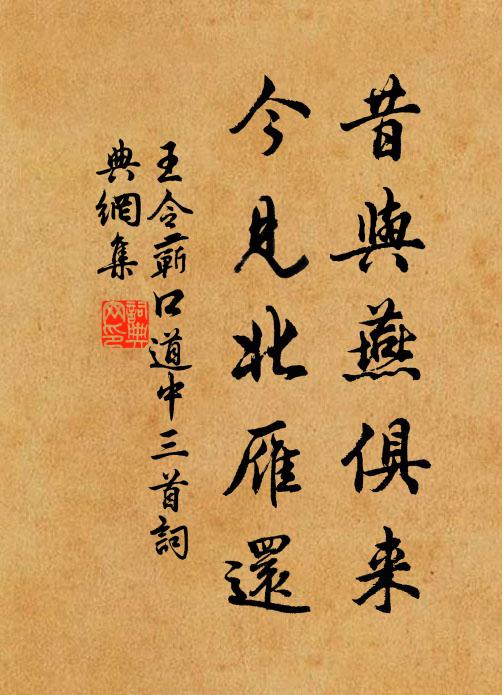 昔與燕俱来
今見北雁還
王令蘄口道中三首詞
典網集
詞典網印